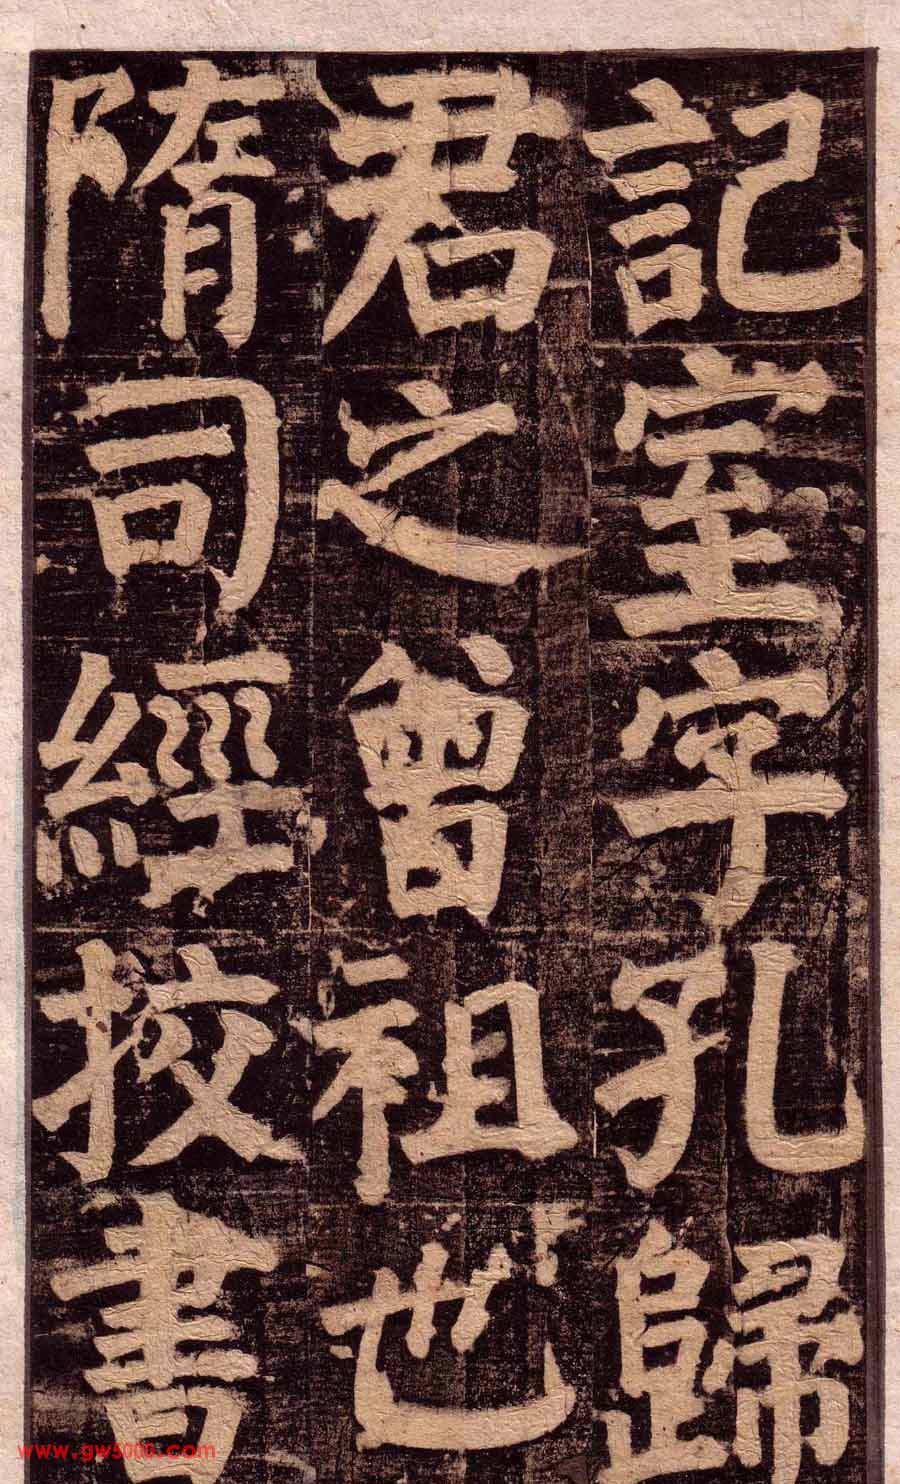 記室字孔歸
君之曾祖也
隋司經校書
www.gw5000.com